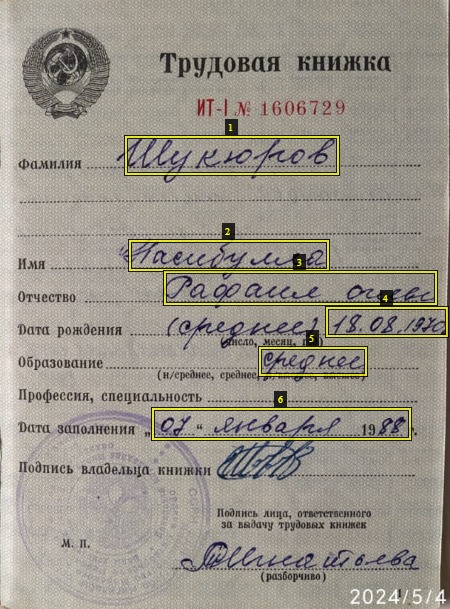 Трудовая книжка
ИТ-I № 1606729
1
Фамилия Шукюров
2
Имя Насибулла
3
Отчество Рафаил оглы
4
Дата рождения (среднее) 18.08.1970
(число, месяц, год)
5
Образование среднее
(н/среднее, среднее, высшее)
6
Профессия, специальность
Дата заполнения „07“ января 1988 г.
Подпись владельца книжки
Подпись лица, ответственного
за выдачу трудовых книжек
М. П.
(разборчиво)
2024/5/4